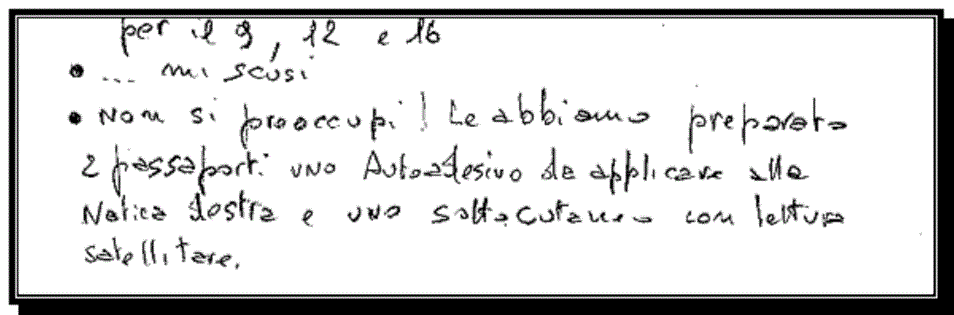 per il 9, 12 e 16
• ... mi scusi
• Non si preoccupi! Le abbiamo preparato
2 passaporti uno Autoadesivo da applicare alla
Natica destra e uno sottocutaneo con lettura
satellitare.